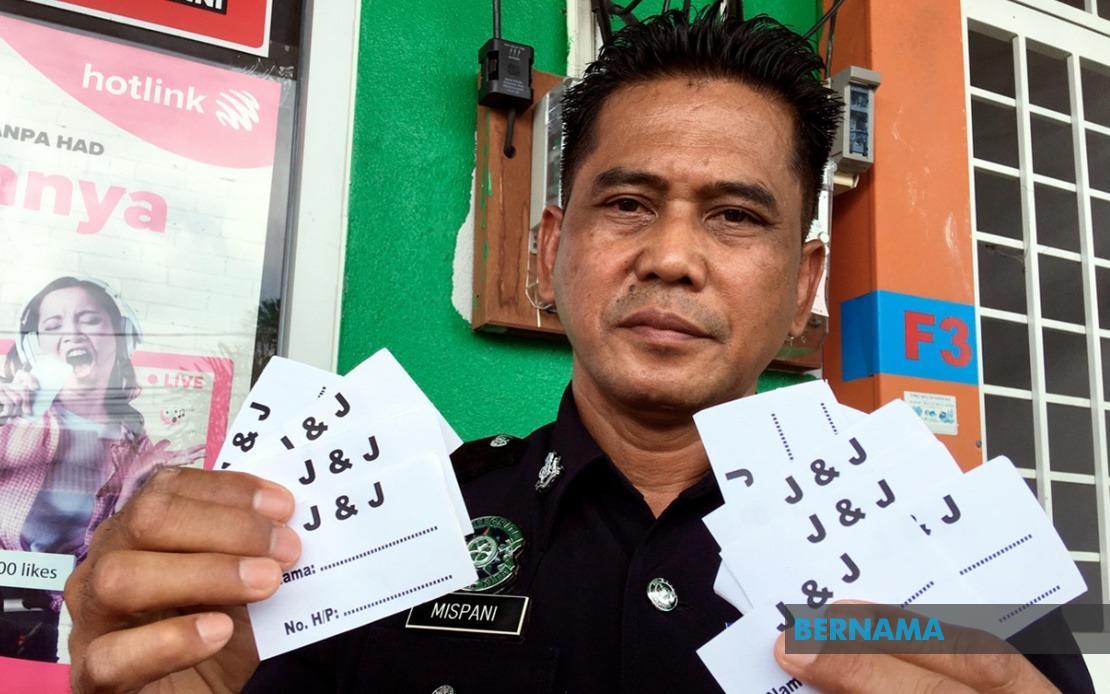 hotlink
ANPA HAD
anya
LIVE
00 likes
F3
J & J
J & J
J & J
J & J
ama:
No. H/P:
MISPANI
J
J & J
J & J
J & J
& J
J
Nam
BERNAMA